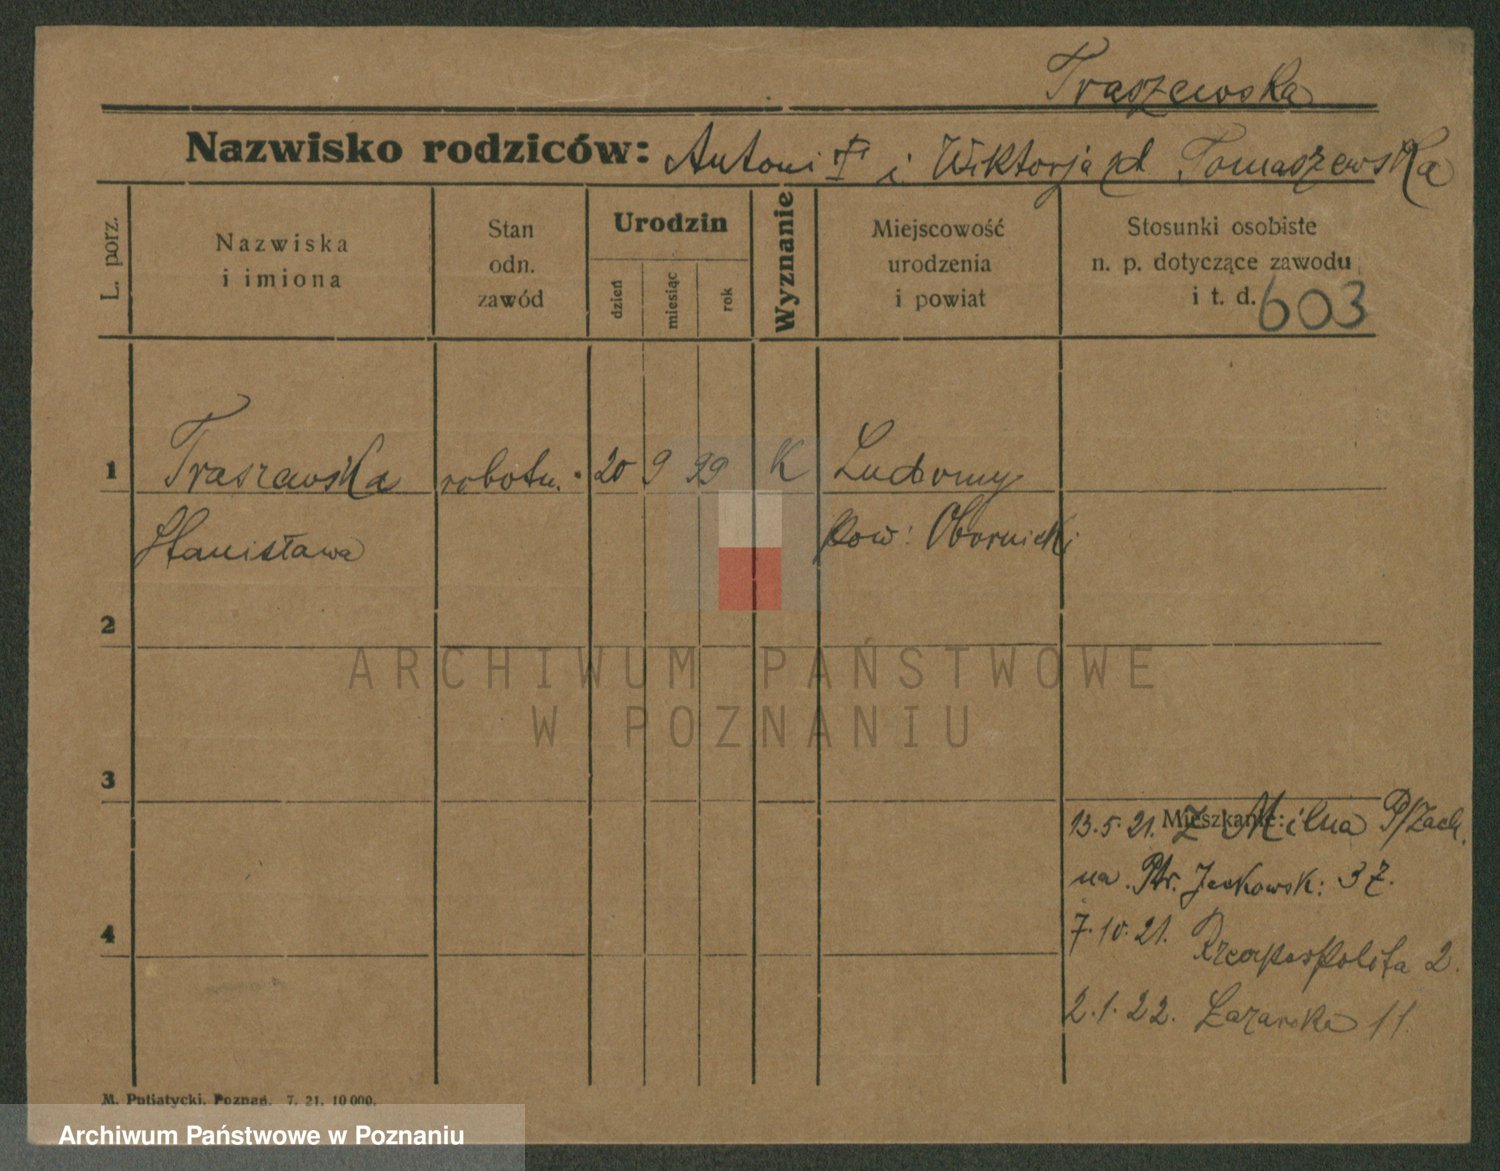 Traszewska
Nazwisko rodziców: Antoni i Wiktorja Tomaszewska
L. porz.
Nazwiska
i imiona
Stan
odn.
zawód
Urodzin
dzień
miesiąc
rok
Wyznanie
Miejscowość
urodzenia
i powiat
Stosunki osobiste
n. p. dotyczące zawodu
i t. d. 603
1 Traszewska robotn. 20 9 99 K Ludomy
Stanisława pow: Obornicki
2
3
Mieszkanie:
13.5.21. Z Milna P/Zach.
na Ptr. Jackowsk: 37.
4
7.10.21. Rzeczpospolita 2.
2.1.22. Łazarska 11.
M. Putiatycki, Poznań. 7. 21. 10 000.
ARCHIWUM PAŃSTWOWE
W POZNANIU
Archiwum Państwowe w Poznaniu